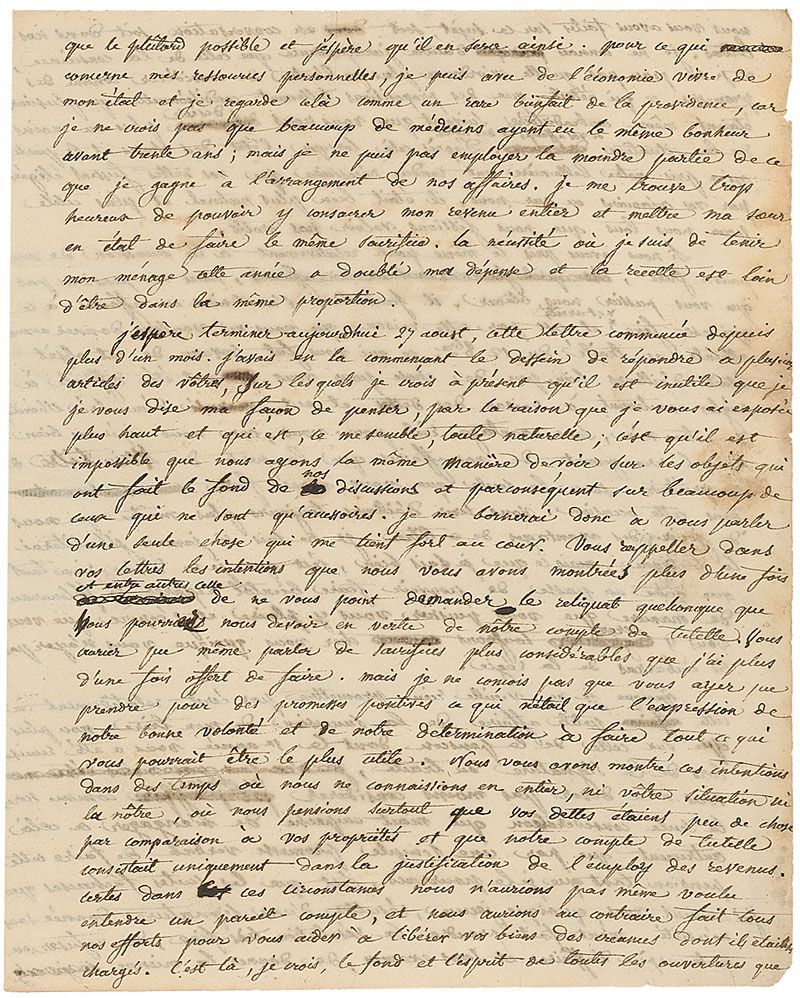 que le plûtard possible et j'espère qu'il en sera ainsi. pour ce qui
concerne mes ressources personnelles, je puis avec de l'économie vivre de
mon état et je regarde celà comme un rare bienfait de la providence, car
je ne crois pas que beaucoup de médecins ayent eu le même bonheur
avant trente ans; mais je ne puis pas employer la moindre partie de ce
que je gagne à l'arrangement de nos affaires. Je me trouve trop
heureux de pouvoir y consacrer mon revenu entier et mettre ma sœur
en état de faire le même sacrifice. la nécessité où je suis de tenir
mon ménage cette année a doublé ma dépense et la recette est loin
d'être dans la même proportion.
j'espère terminer aujourdhui 27 aoust, cette lettre commencée depuis
plus d'un mois. j'avais en la commençant le dessein de répondre à plusieurs
articles des vôtres, sur lesquels je crois à présent qu'il est inutile que je
je vous dise ma façon de penser, par la raison que je vous ai exposée
plus haut et qui est, ce me semble, toute naturelle; c'est qu'il est
impossible que nous ayons la même manière de voir sur les objets qui
ont fait le fond de nos discussions et parconséquent sur beaucoup de
ceux qui ne sont qu'accessoires. je me bornerai donc à vous parler
d'une seule chose qui me tient fort au cœur. Vous rappellez dans
vos lettres les intentions que nous vous avons montrées plus d'une fois
et entre autres celle
de ne vous point demander le reliquat quelconque que
vous pourriez nous devoir en vertu de nôtre compte de tutelle. Vous
auriez pu même parler de sacrifices plus considérables que j'ai plus
d'une fois offert de faire. mais je ne conçois pas que vous ayez pu
prendre pour des promesses positives ce qui n'était que l'expression de
notre bonne volonté et de notre détermination à faire tout ce qui
vous pourrait être le plus utile. Nous vous avons montré ces intentions
dans des temps où nous ne connaissions en entier, ni vôtre situation ni
la nôtre, où nous pensions surtout que vos dettes étaient peu de chose
par comparaison à vos propriétés et que notre compte de tutelle
consistait uniquement dans la justification de l'employ des revenus.
certes dans ces circonstances nous n'aurions pas même voulu
entendre un pareil compte, et nous aurions au contraire fait tous
nos efforts pour vous aider à libérer vos biens des créances dont ils étaient
chargés. C'est là, je crois, le fond et l'esprit de toutes les ouvertures que